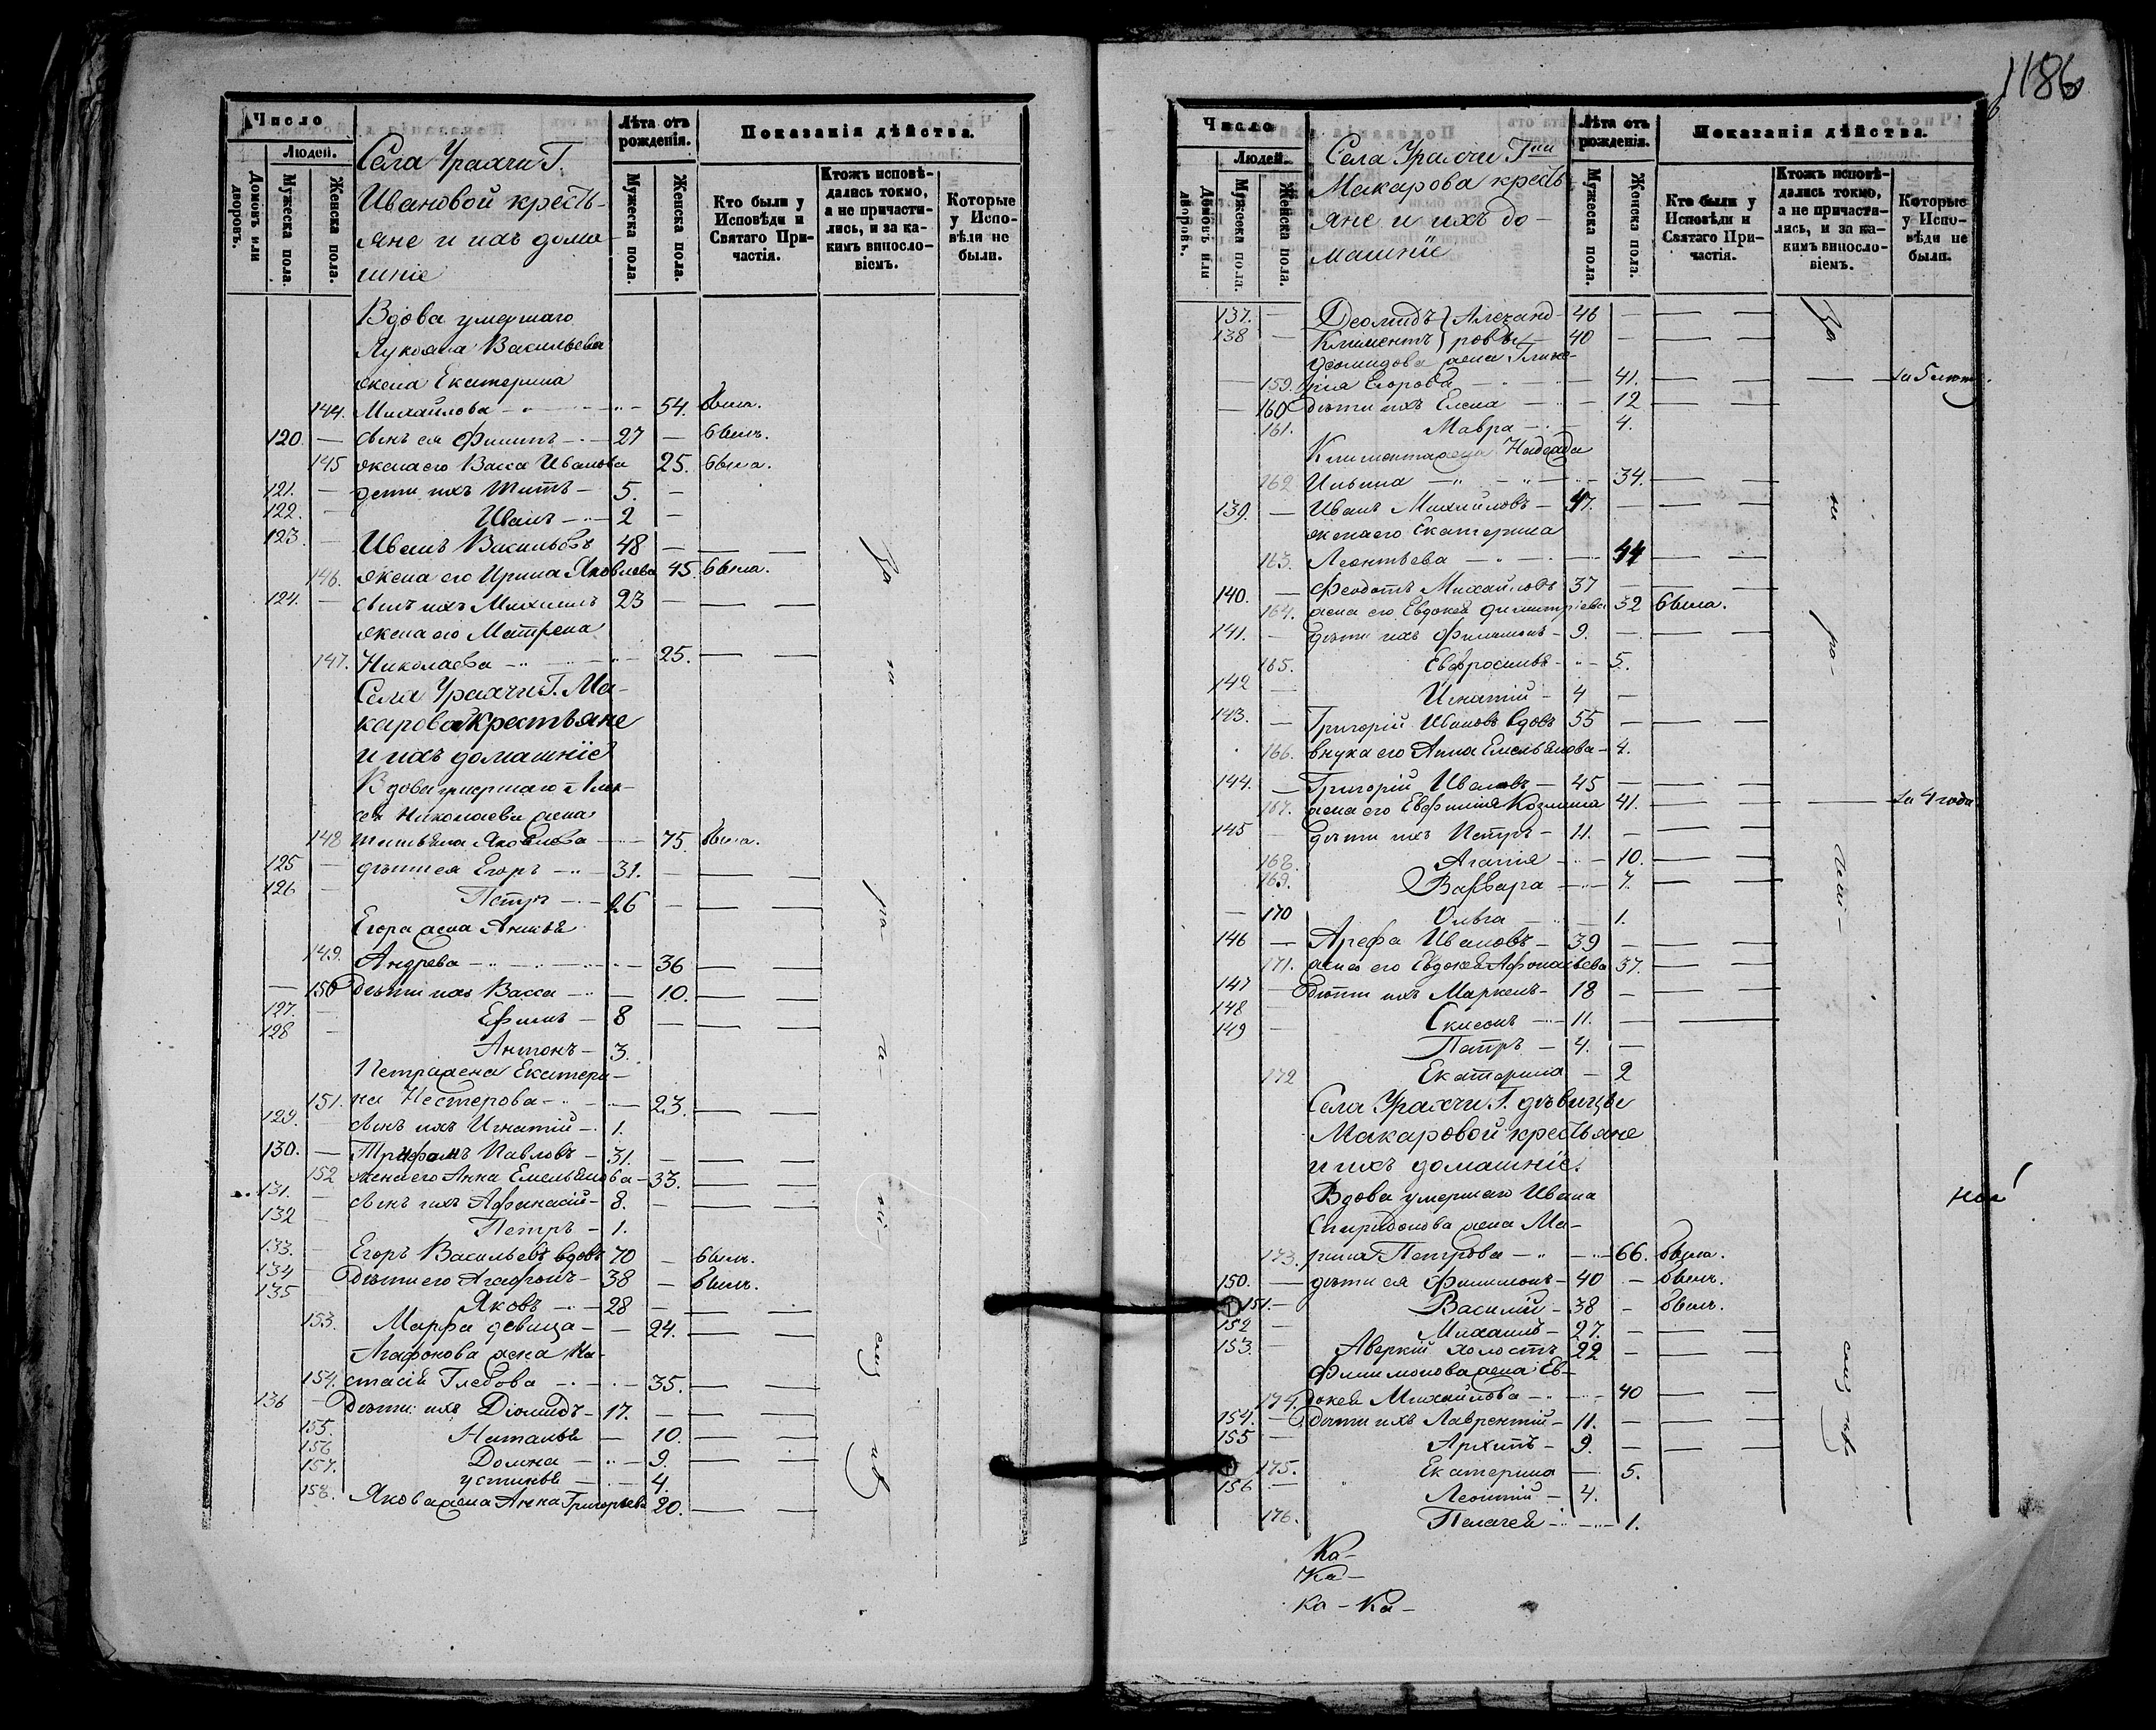 Число
Людей.
Домовъ или дворовъ.
Мужеска пола.
Женска пола.
Села Урахчи Г.
Ивановой кресть-
яне и ихъ дома-
шніе
Лѣта отъ рожденія.
Мужеска пола.
Женска пола.
Показанія дѣйства.
Кто были у Исповѣди и Святаго При-частія.
Ктожъ исповѣ-дались токмо, а не причасти-лись, и за ка-кимъ винословіемъ.
Которые у Испо-вѣди не были.
Вдова умершаго
Лукояна Васильева
жена Екатерина
144. Михайлова 54. была.
120. — сынъ ея Филипъ 27 — былъ.
145 жена его Васса Иванова 25. была.
121. — дети ихъ Титъ 5. —
122. — Иванъ 2 —
123. — Иванъ Васильевъ 48 — — —
146. жена его Ирина Яковлева 45. была.
124. — сынъ ихъ Михаилъ 23 — — —
жена его Матрена
147. Николаева 25. — —
Села Урахчи Г. Ма-
карова крестьяне
и ихъ домашніе
Вдова умершаго Алек-
сѣя Николаева жена
148 Татьяна Яковлева 75. была.
125 — дѣти ея Егоръ 31. — — —
126 — Петръ 26 — — —
Егора жена Анисья
149. Андрева 36 — —
— 150 Дѣти ихъ Васса — 10. — —
127. — Ефимъ 8 — — —
128 — Антонъ 3.
Петра жена Екатери-
151. на Нестерова 23. — —
129. — сынъ ихъ Игнатій 1.
130. — Трифонъ Павловъ 31. — — —
152 жена его Анна Емельянова 33. — —
131. — сынъ ихъ Афанасій 8. — — —
132 — Петръ 1.
133. — Егоръ Васильевъ вдовъ 70 — былъ.
134 — Дѣти его Агафонъ 38 — былъ.
135 — Яковъ 28 — — —
153. Марфа девица — 24. — —
Агафонова жена На-
154. стасія Глебова 35. — —
136 — Дѣти ихъ Діомидъ 17. — — —
155. Наталья — 10. — —
156. Домна 9. — —
157. Устинья 4.
158. Якова жена Анна Григорьева 20. — —
За
не
ра-
де-
ні-
емъ
1186
Число
Людей.
Домовъ или дворовъ.
Мужеска пола.
Женска пола.
Села Урахчи Г
Макарова кресть-
яне и ихъ до-
машніи
Лѣта отъ рожденія.
Мужеска пола.
Женска пола.
Показанія дѣйства.
Кто были у Исповѣди и Святаго При-частія.
Ктожъ исповѣ-дались токмо, а не причасти-лись, и за ка-кимъ винословіемъ.
Которые у Испо-вѣди не были.
137. — Деомидъ } Александ- 46 — — —
138 — Климентъ } ровы 40 — — —
Деомидова жена
159. Егорова 41. — — —
— 160 Дѣти ихъ Елена 12 — —
161. Мавра 4.
Климента жена Надежда
162 Ильина 34. — —
139. — Иванъ Михайловъ 47. — — —
жена его Екатерина
163. Леонтьева 44 — —
140. — Феодотъ Михайловъ 37 — — —
164. жена его Евдокея Димитріева 32 была.
141. — дѣти ихъ Филимонъ 9. — — —
165. Евфросинья 5.
142 — Игнатій 4 —
143. — Григорій Ивановъ вдовъ 55 — — —
166. внука его Анна Емельянова 4.
144. — Григорій Ивановъ 45 — — —
167. жена его Евфимія Козмина 41. — — — за 4 года
145 — дѣти ихъ Петръ 11. — — —
168. Агапія 10. — —
169. Варвара 7. — —
— 170 Ольга 1.
146 — Арефа Ивановъ 39 — — —
171. жена его Евдокея Афонасьева 37. — —
147 — Дѣти ихъ Маркелъ 18 — — —
148 — Симеонъ 11. — — —
149 — Петръ 4. —
172 Екатерина 2
Села Урахчи Г. дѣвицы
Макаровой крестьяне
и ихъ домашніе.
Вдова умершаго Ивана
Спиридонова жена Ма-
173. рина Петрова 66. была.
150. — дѣти ея Филимонъ 40 — былъ.
151. — Василій 38 — былъ.
152 — Михаилъ 27. — — —
153. — Аверкій холостъ 22 — — —
Филимонова жена Ев-
174. докея Михайлова 40 — —
154. — Дѣти ихъ Лаврентій 11. — — —
155 — Архипъ 9. — — —
175. Екатерина 5.
156 — Леонтій 4.
176. Пелагея 1.
За
не
ра-
емъ
Ка-
Ка-
Ка- Ка-